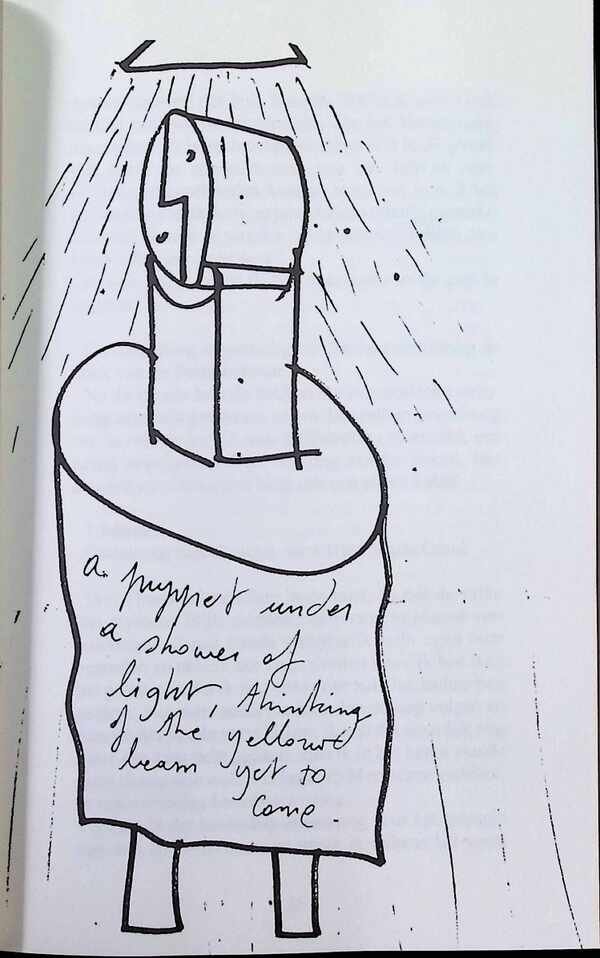 a puppet under
a shower of
light, thinking
of the
beam yet to
come